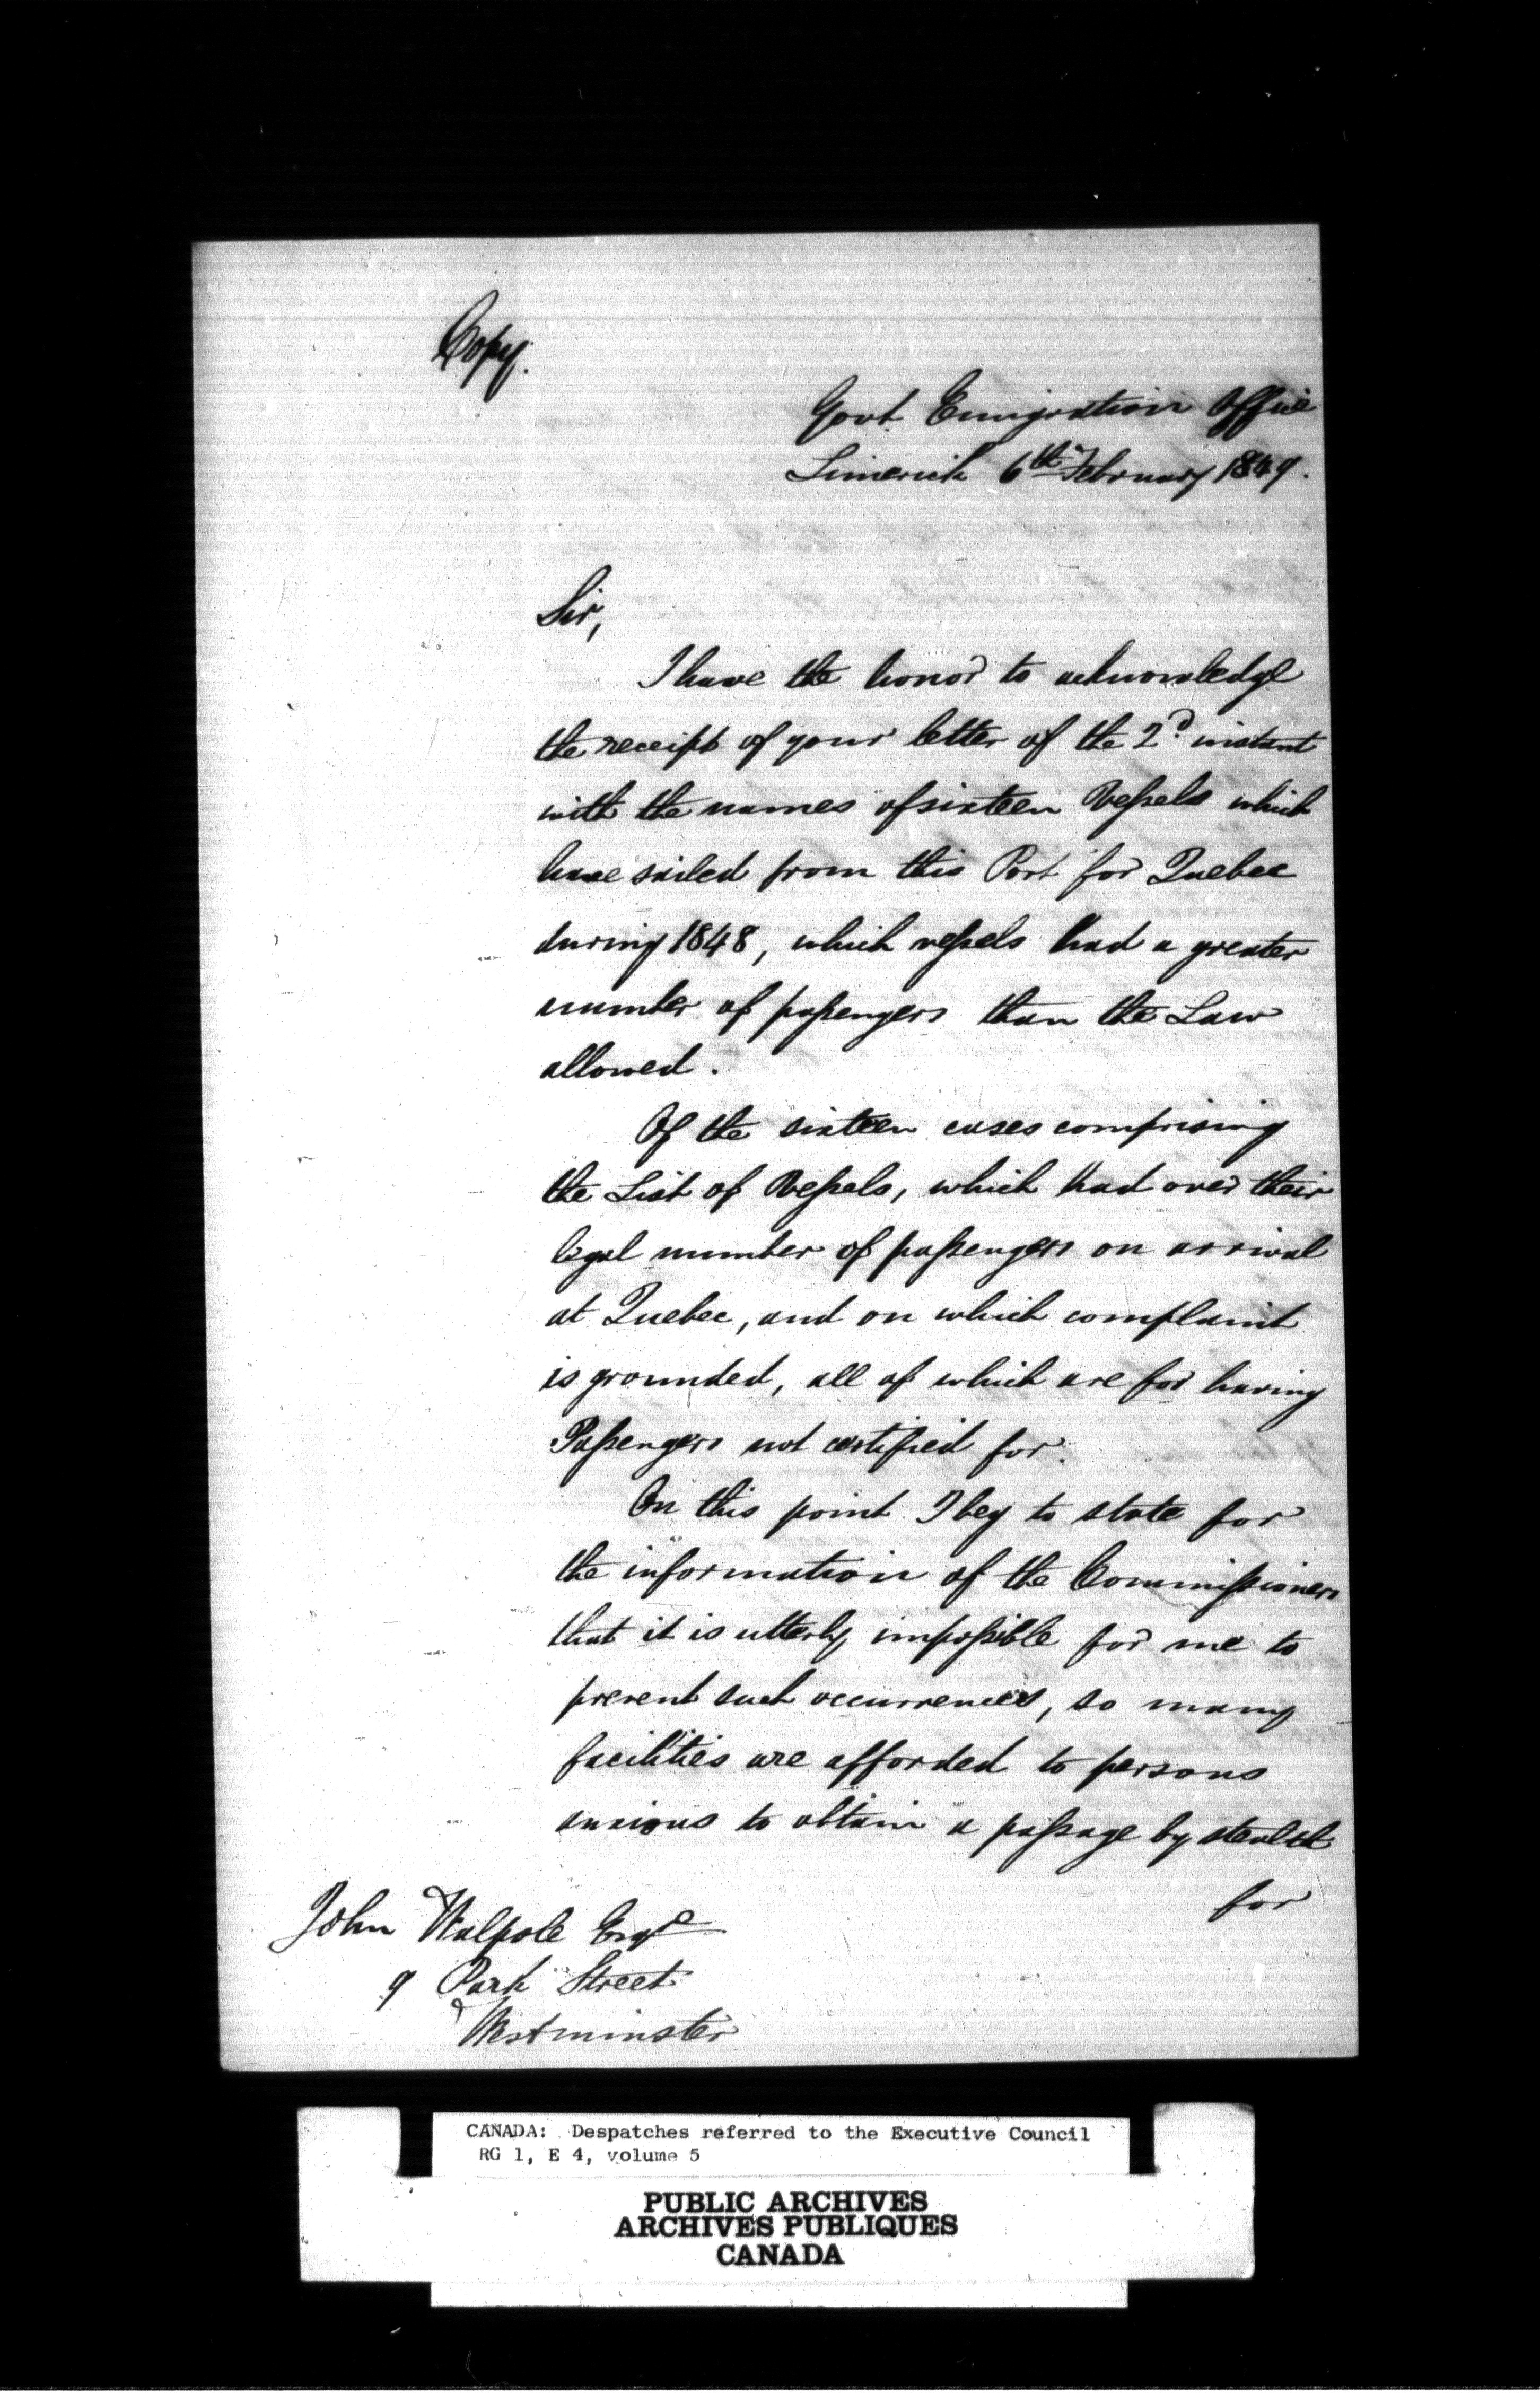 Copy.
Govt Emigration Office
Limerick 6th February 1849.
Sir,
I have the honor to acknowledge
the receipt of your letter of the 2d. instant
with the names of sixteen Vessels which
have sailed from this Port for Quebec
during 1848, which vessels had a greater
number of passengers than the Law
allowed.
Of the sixteen cases comprising
the List of Vessels, which had over their
legal number of passengers on arrival
at Quebec, and on which complaint
is grounded, all of which are for having
Passengers not certified for.
On this point I beg to state for
the information of the Commissioners
that it is utterly impossible for me to
prevent such occurrences, so many
facilities are afforded to persons
anxious to obtain a passage by stealth
for
John Walpole Esqre
9 Park Street
Westminster
CANADA: Despatches referred to the Executive Council
RG 1, E 4, volume 5
PUBLIC ARCHIVES
ARCHIVES PUBLIQUES
CANADA